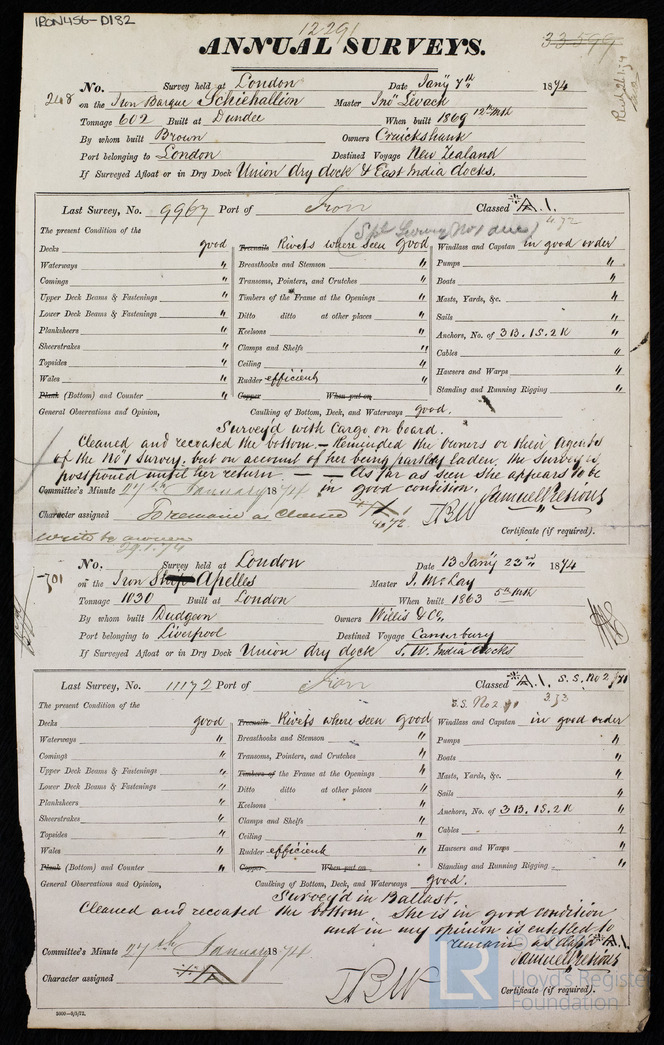 IRON456-D182
12291
33599
ANNUAL SURVEYS.
No. Survey held at London Date Jany 7th 1874
248 on the Iron Barque Schiehallion Master Jno Levack
Tonnage 602 Built at Dundee When built 1869 12th Mth
By whom built Brown Owners Cruickshank
Port belonging to London Destined Voyage New Zealand
If Surveyed Afloat or in Dry Dock Union dry dock & East India docks.
Last Survey, No. 9967 Port of Iron Classed A.1.
(Spl Survey No 1 due)
The present Condition of the
Decks good Treenails Rivets where seen good Windlass and Capstan in good order
Waterways " Breasthooks and Stemson " Pumps "
Comings " Transoms, Pointers, and Crutches " Boats "
Upper Deck Beams & Fastenings " Timbers of the Frame at the Openings " Masts, Yards, &c. "
Lower Deck Beams & Fastenings " Ditto ditto at other places " Sails "
Planksheers " Keelsons " Anchors, No. of 3B. 1S. 2K "
Sheerstrakes " Clamps and Shelfs " Cables "
Topsides " Ceiling " Hawsers and Warps "
Wales " Rudder efficient " Standing and Running Rigging "
Plank (Bottom) and Counter " Copper When put on
General Observations and Opinion, Caulking of Bottom, Deck, and Waterways good.
Survey'd with Cargo on board.
Cleaned and recoated the bottom. - Reminded the Owners or their Agents
of the No 1 Survey, but on account of her being partly laden, the Survey is
postponed until her return — — As far as seen she appears to be
Committee's Minute 27th January 1874 in good condition.
Character assigned To remain as Classed
Certificate (if required).
write to owners
29.1.74
No. Survey held at London Date 13 Jany 23rd 1874
301 on the Iron Ship Apelles Master J. McLay
Tonnage 1030 Built at London When built 1863 5th Mth
By whom built Dudgeon Owners Willis & Co,
Port belonging to Liverpool Destined Voyage Canterbury
If Surveyed Afloat or in Dry Dock Union dry dock S. W. India docks
Last Survey, No. 11172 Port of Iron Classed A.1. S.S. No 2
S.S. No 2
The present Condition of the
Decks good Treenails Rivets where seen good Windlass and Capstan in good order
Waterways " Breasthooks and Stemson " Pumps "
Comings " Transoms, Pointers, and Crutches " Boats "
Upper Deck Beams & Fastenings " Timbers of the Frame at the Openings " Masts, Yards, &c. "
Lower Deck Beams & Fastenings " Ditto ditto at other places " Sails "
Planksheers " Keelsons " Anchors, No. of 3B. 1S. 2K "
Sheerstrakes " Clamps and Shelfs " Cables "
Topsides " Ceiling " Hawsers and Warps "
Wales " Rudder efficient " Standing and Running Rigging "
Plank (Bottom) and Counter " Copper When put on
General Observations and Opinion, Caulking of Bottom, Deck, and Waterways good.
Survey'd in Ballast.
Cleaned and recoated the bottom. She is in good condition
and in my opinion is entitled to
remain as class'd A.1.
Committee's Minute 27th January 1874
Character assigned
Certificate (if required).
LR © Lloyd's Register Foundation